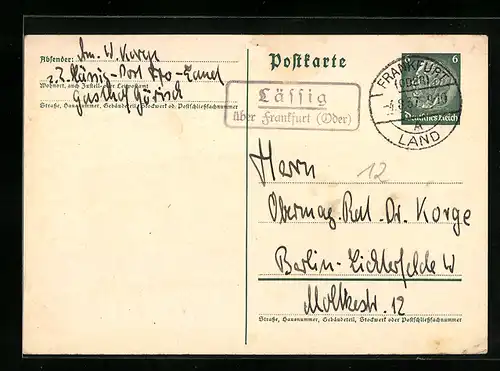 Absender: W. Korge
z.Z. Post Ffo-Land
Wohnort, auch Zustell- oder Leitpostamt
Gasthof
Straße, Hausnummer, Gebäudeteil, Stockwerk od. Postschließfachnummer
Postkarte
6 6
Deutsches Reich
FRANKFURT
(ODER)
LAND
Lässig
über Frankfurt (Oder)
12
Herrn
Obermag. Rat. Dr. Korge
Berlin-Lichterfelde W
Moltkestr. 12
Straße, Hausnummer, Gebäudeteil, Stockwerk oder Postschließfachnummer